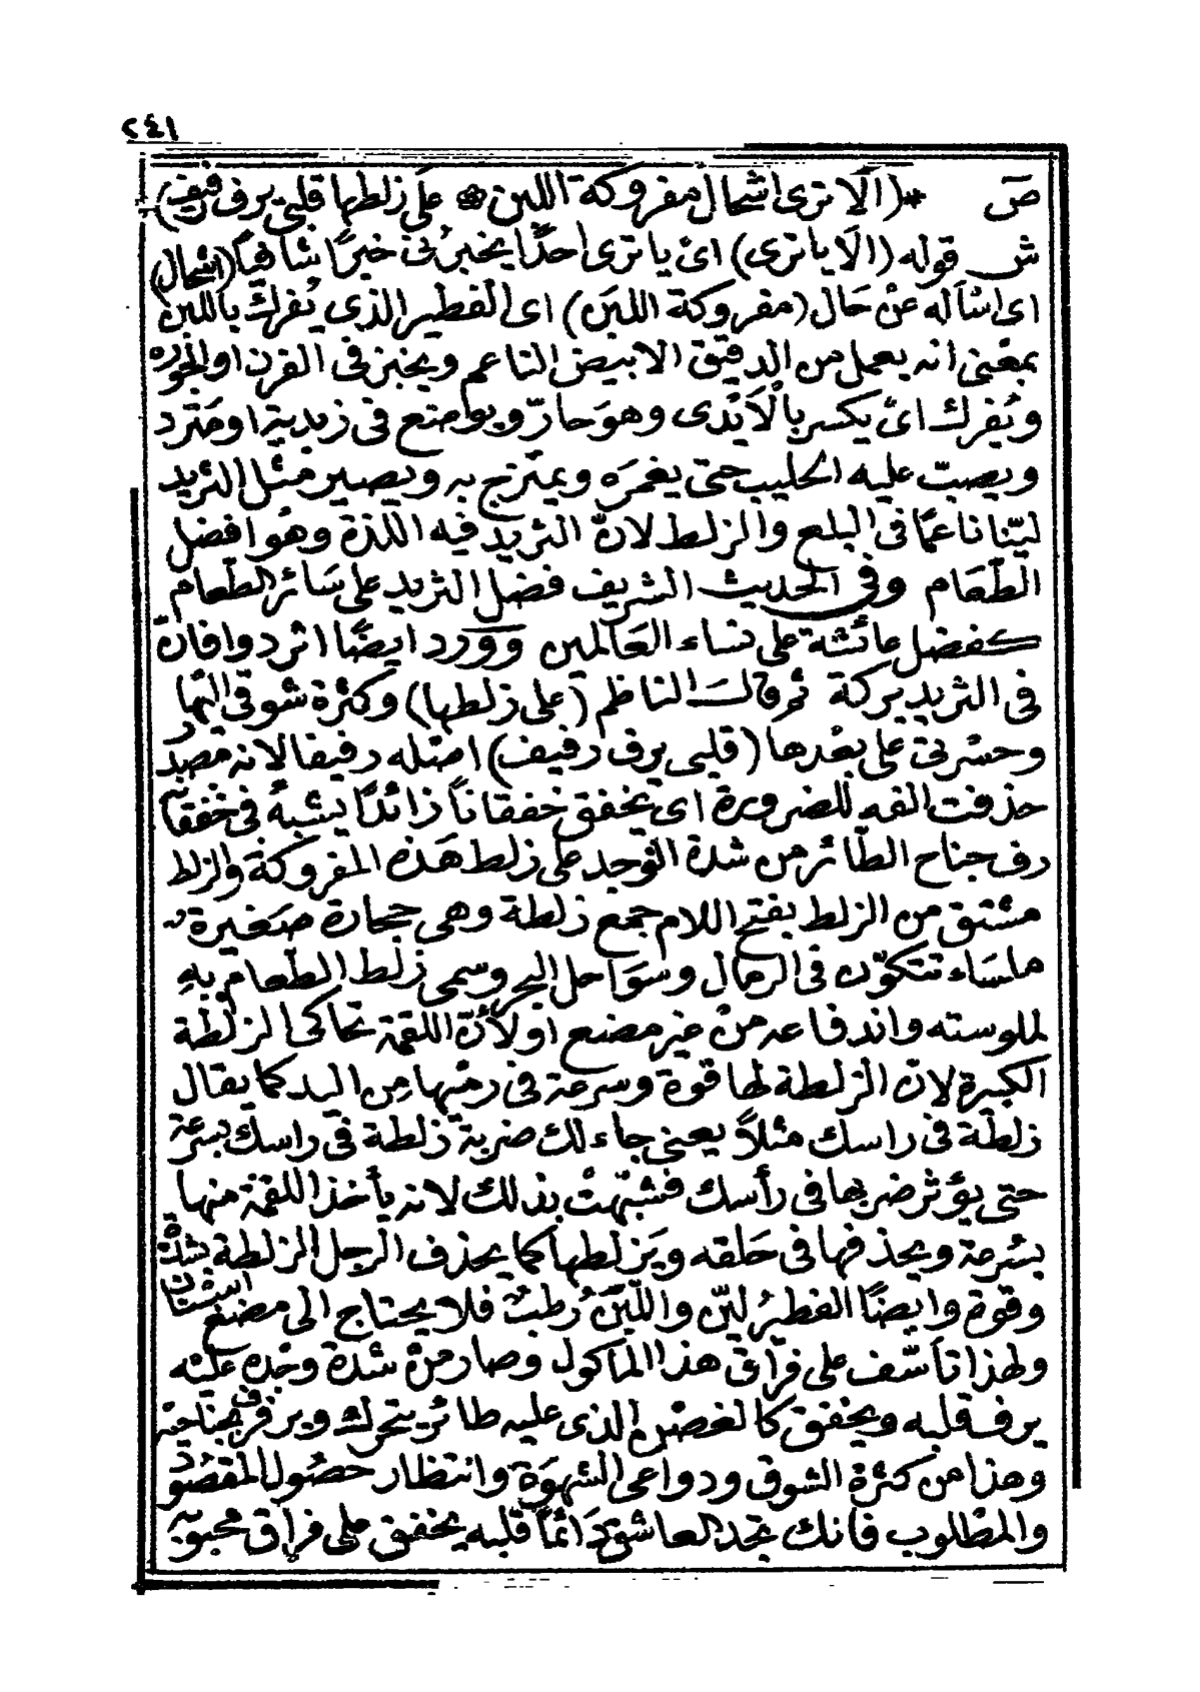 ٢٤١
ص * (الا ترى اشحال مفروكة اللبن ۞ على زلطها قلبى يرف رفيف)
ش قوله (الا يا ترى) اى يا ترى احدًا يخبرنى خبرًا شافيًا (اشحال)
اى اسأله عن حال (مفروكة اللبن) اى الفطير الذى يُفرك باللبن
بمعنى انه يعمل من الدقيق الابيض الناعم ويخبز فى الفرن او الجوره
ويُفرك اى يكسر بالأيدى وهو حارّ ويوضع فى زبدية او مَترد
ويصبّ عليه الحليب حتى يغمره ويمتزج به ويصير مثل الثريد
ليّنا ناعمًا فى البلع والزلط لانّ الثريد فيه اللذة وهو افضل
الطّعام وفى الحديث الشريف فضل الثريد على سائر الطعام
كفضل عائشة على نساء العالمين وورد ايضًا اثردوا فانّ
فى الثريد بركة ثم قال الناظم (على زلطها) وكثرة شوقى اليها
وحسرتى على بعدها (قلبى يرف رفيف) اصله رفيفا لانه مصدر
حذفت الفه للضرورة اى يخفق خفقاناً زائدًا يشبه فى خفقانه
رف جناح الطائر من شدة التوجد على زلط هذه المفروكة والزلط
مشتق من الزلط بفتح اللام جمع زلطة وهى حجارة صغيرة
ملساء تتكوّن فى الرمال وسواحل البحر وسمى زلط الطعام به
لملوسته واندفاعه من غير مضغ او لأنّ اللقمة تحاكى الزلطة
الكبيرة لانّ الزلطة لها قوة وسرعة فى رميها من اليد كما يقال
زلطة فى راسك مثلاً يعنى جاء لك ضربة زلطة فى راسك بسرعة
حتى يؤثر ضربها فى رأسك فشبّهت بذلك لانه يأخذ اللقمة منها
بسرعة ويحذفها فى حلقه ويزلطها كما يحذف الرجل الزلطة بشدّة
وقوة وايضًا الفطيرُ ليّن واللبنُ رُطبٌ فلا يحتاج الى مضغ اسنان
ولهذا تأسّف على فراق هذا المأكول وصار من شدة وجده عليه
يرف قلبه ويخفق كالغصن الذى عليه طائر يتحرك ويرفرف بجناحيه
وهذا من كثرة الشوق ودواعى الشهوة وانتظار حصول المقصود
والمطلوب فانك تجد العاشق دائمًا قلبه يخفق على فراق محبوبه